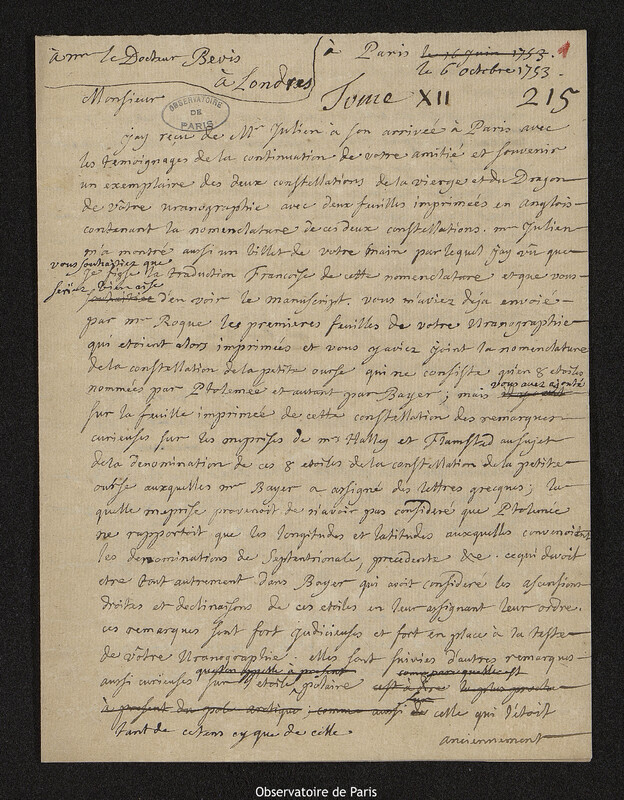 à mr le Docteur Bevis
à Londres
à Paris le 16 Juin 1753.
le 6e octobre 1753.
Monsieur
Tome XII 215
OBSERVATOIRE
DE
PARIS
J'ay reçu de Mr Julien à son arrivée à Paris avec
les temoignages de la continuation de votre amitié et souvenir
un exemplaire des deux constellations de la vierge et du Dragon
de vôtre uranographie avec deux feuilles imprimées en anglois
contenant la nomenclature de ces deux constellations. mr Julien
m'a montré aussi un billet de votre main par lequel j'ay vû que
vous souhaitiez que
je fisse la traduction Francoise de cette nomenclature et que vous
seriez bien aise
souhaitiez d'en voir le manuscript. vous m'aviez deja envoié
par mr Roque les premieres feuilles de votre Uranographie
qui etoient alors imprimées et vous y aviez joint la nomenclature
de la constellation de la petite ourse qui ne consiste qu'en 8 etoiles
nommées par Ptolemée et autant par Bayer; mais
vous avez ajouté
sur la feuille imprimée de cette constellation des remarques
curieuses sur les meprises de mrs Halley et Flamsted au sujet
de la denomination de ces 8 etoiles de la constellation de la petite
ourse auxquelles mr Bayer a assigné des lettres grecques; la
quelle meprise provenoit de n'avoir pas consideré que Ptolemée
ne rapportoit que les longitudes et latitudes auxquelles convenoient
les denominations de Septentrionale, precedente &c. ce qui devoit
etre tout autrement dans Bayer qui avoit consideré les ascensions
droites et declinaisons de ces etoiles en leur assignant leur ordre.
ces remarques sont fort judicieuses et fort en place à la teste
de vôtre Uranographie. elles sont suivies d'autres remarques
qu'on appelle à present
aussi curieuses sur l'etoile polaire c'est à dire la plus proche
à present du pole arctique; comme aussi de celle qui l'etoit
tant de ce tens cy que de celle
anciennement
Observatoire de Paris